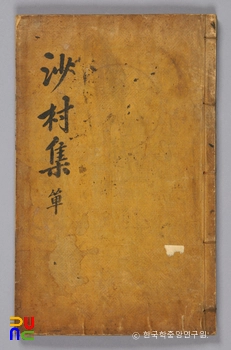 沙村集
單
© 한국학중앙연구원